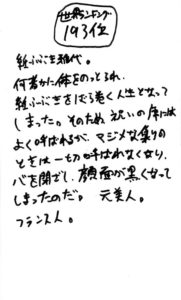 世界ランキング
193位
紙ふぶき雅代。
何者かに体をのっとられ、
紙ふぶきをばら巻く人生となって
しまった。そのため、祝いの席には
よく呼ばれるが、マジメな集りの
ときは一切呼ばれなくなり、
心を閉ざし、顔面が黒くなって
しまったのだ。元美人。
フランス人。